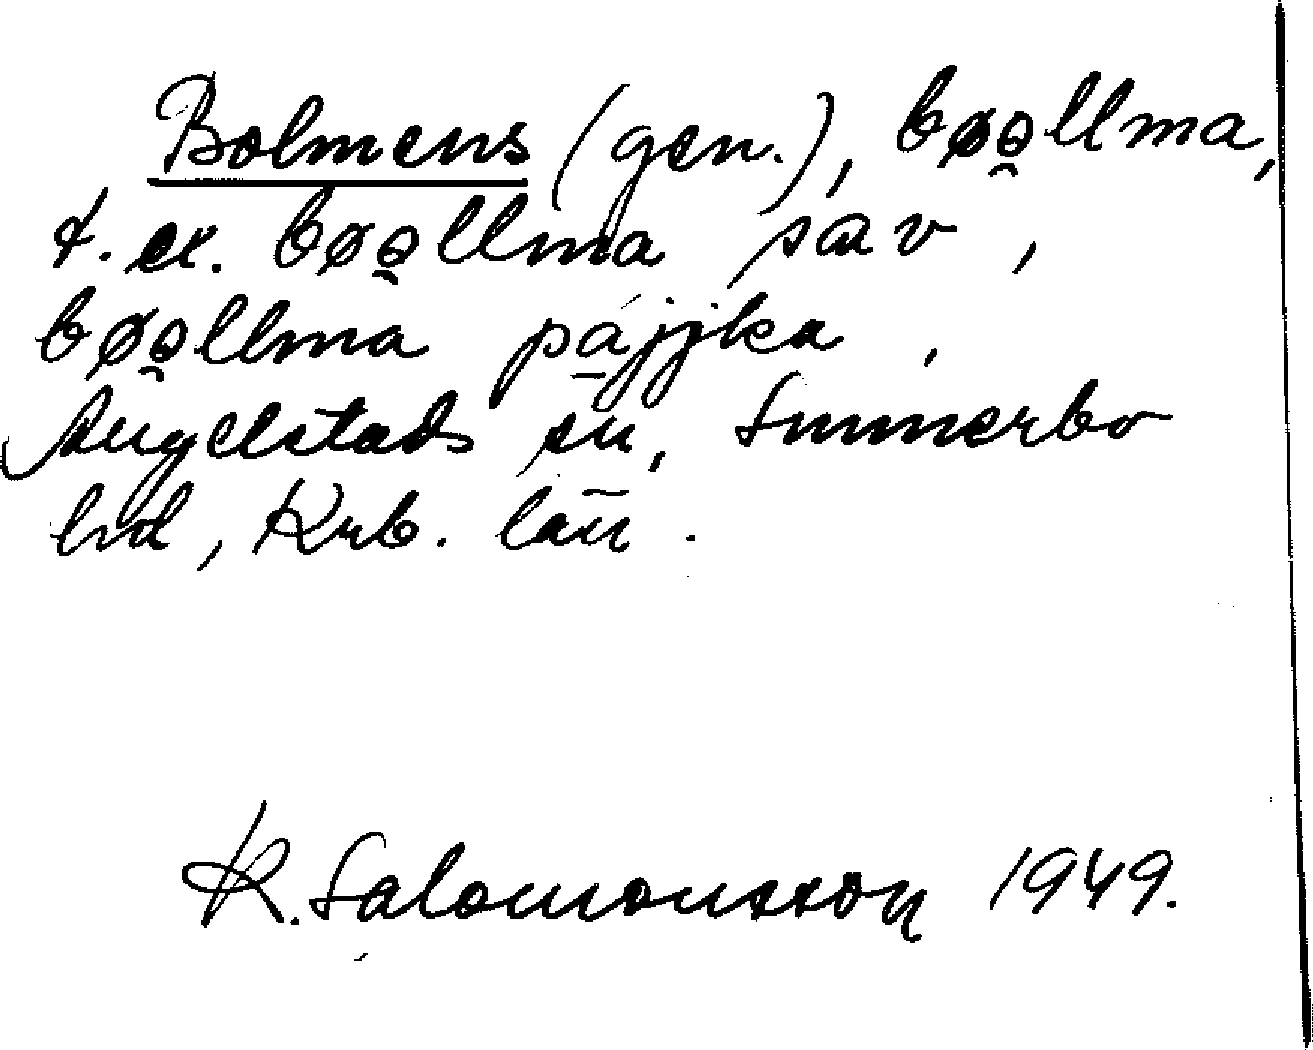 Bolmens (gen.), bøө̯llma,
t. ex. bøө̯llma sæv,
bøө̯llma pajjka.
Angelstads sn, Sunnerbo
hd, Krb. län.
K. Salomonsson 1949.